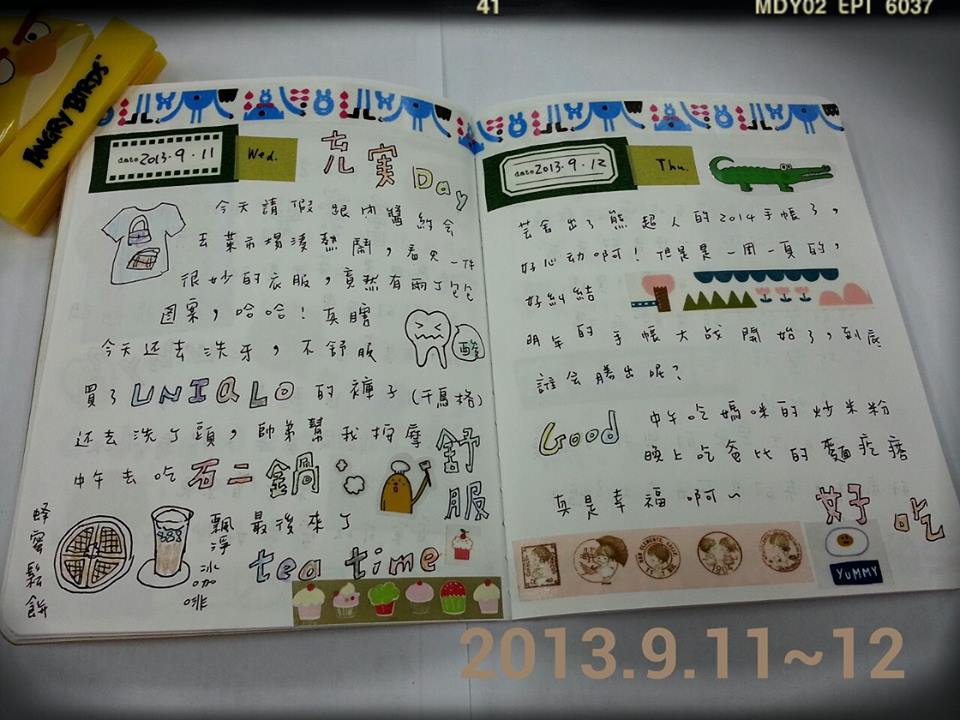 41
MDY02 EPT 6037
ANGRY BIRDS
date 2013.9.11 Wed. 充実 Day
今天請假跟內醬約会
去菜市場湊熱鬧，看見一件
很妙的衣服，竟然有兩个包包
圖案，哈哈！真瞎
今天还去洗牙，不舒服 酸
買了UNIQLO的褲子(千鳥格)
还去洗了頭，帥弟幫我按摩 舒服
中午去吃石二鍋
最後來了
tea time
蜂蜜鬆餅
飄浮冰咖啡
date 2013.9.12 Thu.
芸舍出了熊超人的2014手帳了，
好心动啊！但是是一周一頁的，
好糾結
明年的手帳大战開始了，到底
誰会勝出呢？
Good 中午吃媽咪的炒米粉
晚上吃爸比的麵疙瘩
真是幸福啊～ 好吃
YUMMY
2013.9.11~12